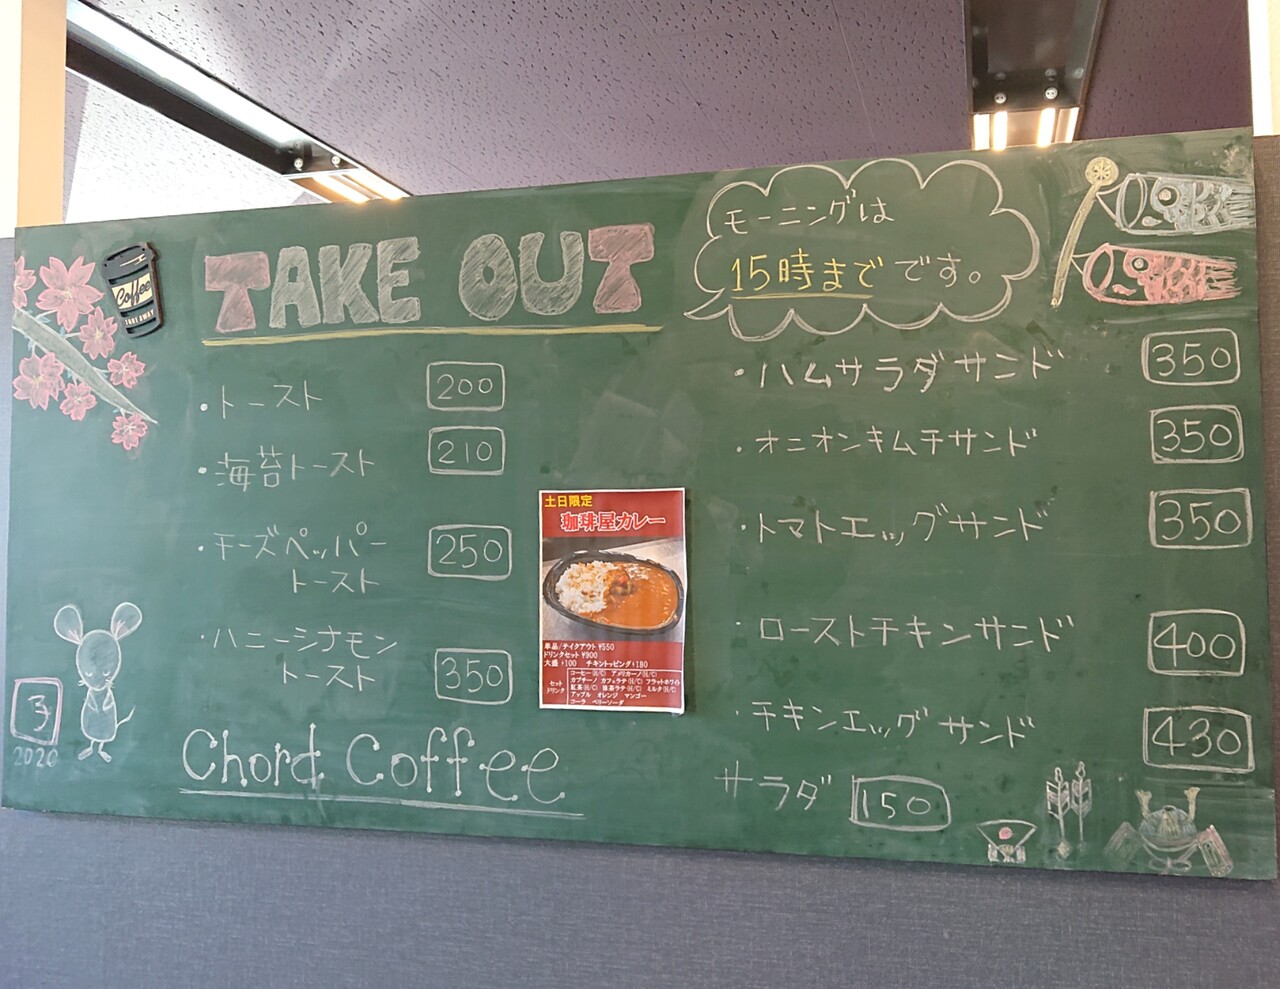 TAKE OUT
モーニングは
15時までです。
Coffee
TAKE AWAY
・トースト 200
・海苔トースト 210
・チーズペッパー
トースト 250
・ハニーシナモン
トースト 350
Chord Coffee
2020
土日限定
珈琲屋カレー
単品/テイクアウト ¥550
ドリンクセット ¥900
大盛 ¥100 チキントッピング ¥180
セット
ドリンク
コーヒー(H/C) アメリカーノ(H/C)
カプチーノ カフェラテ(H/C) フラットホワイト
紅茶(H/C) 抹茶ラテ(H/C) ミルク(H/C)
アップル オレンジ マンゴー
コーラ ベリーソーダ
・ハムサラダサンド 350
・オニオンキムチサンド 350
・トマトエッグサンド 350
・ローストチキンサンド 400
・チキンエッグサンド 430
サラダ 150